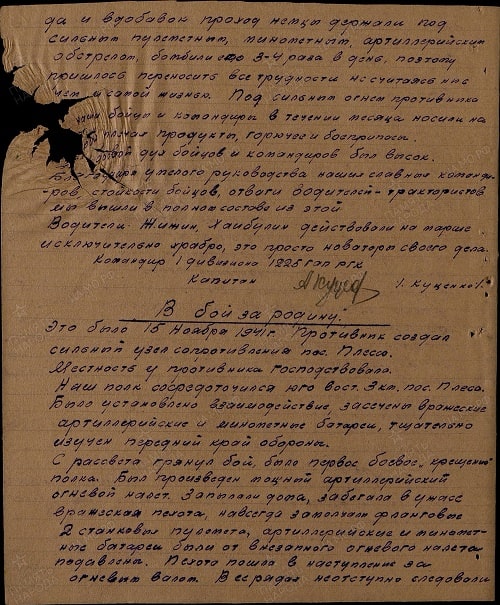 да и вдобавок проход немцы держали под
сильным пулеметным, минометным, артиллерийским
обстрелом, бомбили его 3-4 раза в день, поэтому
пришлось переносить все трудности не считаясь ни с
чем и самой жизнью. Под сильным огнем противника
наши бойцы и командиры в течении месяца носили на
плечах продукты, горючее и боеприпасы.
дух бойцов и командиров был высок.
умелого руководства наших славных команди-
ров, стойкости бойцов, отваги водителей-трактористов
мы вышли в полном составе из этой
Водители Жишин, Хайбулин действовали на марше
исключительно храбро, это просто новаторы своего дела.
Командир 1 дивизиона 1225 гап ргк
Капитан / Куценко /
В бой за родину!
Это было 15 Ноября 1941г. Противник создал
сильный узел сопротивления пос. Плессо.
Местность у противника господствовала.
Наш полк сосредоточился юго вост. 3км. пос. Плесо.
Было установлено взаимодействие, засечены вражеские
артиллерийские и минометные батареи, тщательно
изучен передний край обороны.
С рассвета грянул бой, было первое боевое „крещение"
полка. Был произведен мощный артиллерийский
огневой налет. Запылали дома, забегала в ужасе
вражеская пехота, навсегда замолчали фланговые
2 станковых пулемета, артиллерийские и миномет-
ные батареи были от внезапного огневого налета
подавлены. Пехота пошла в наступление за
огневым валом. В ее рядах неотступно следовали